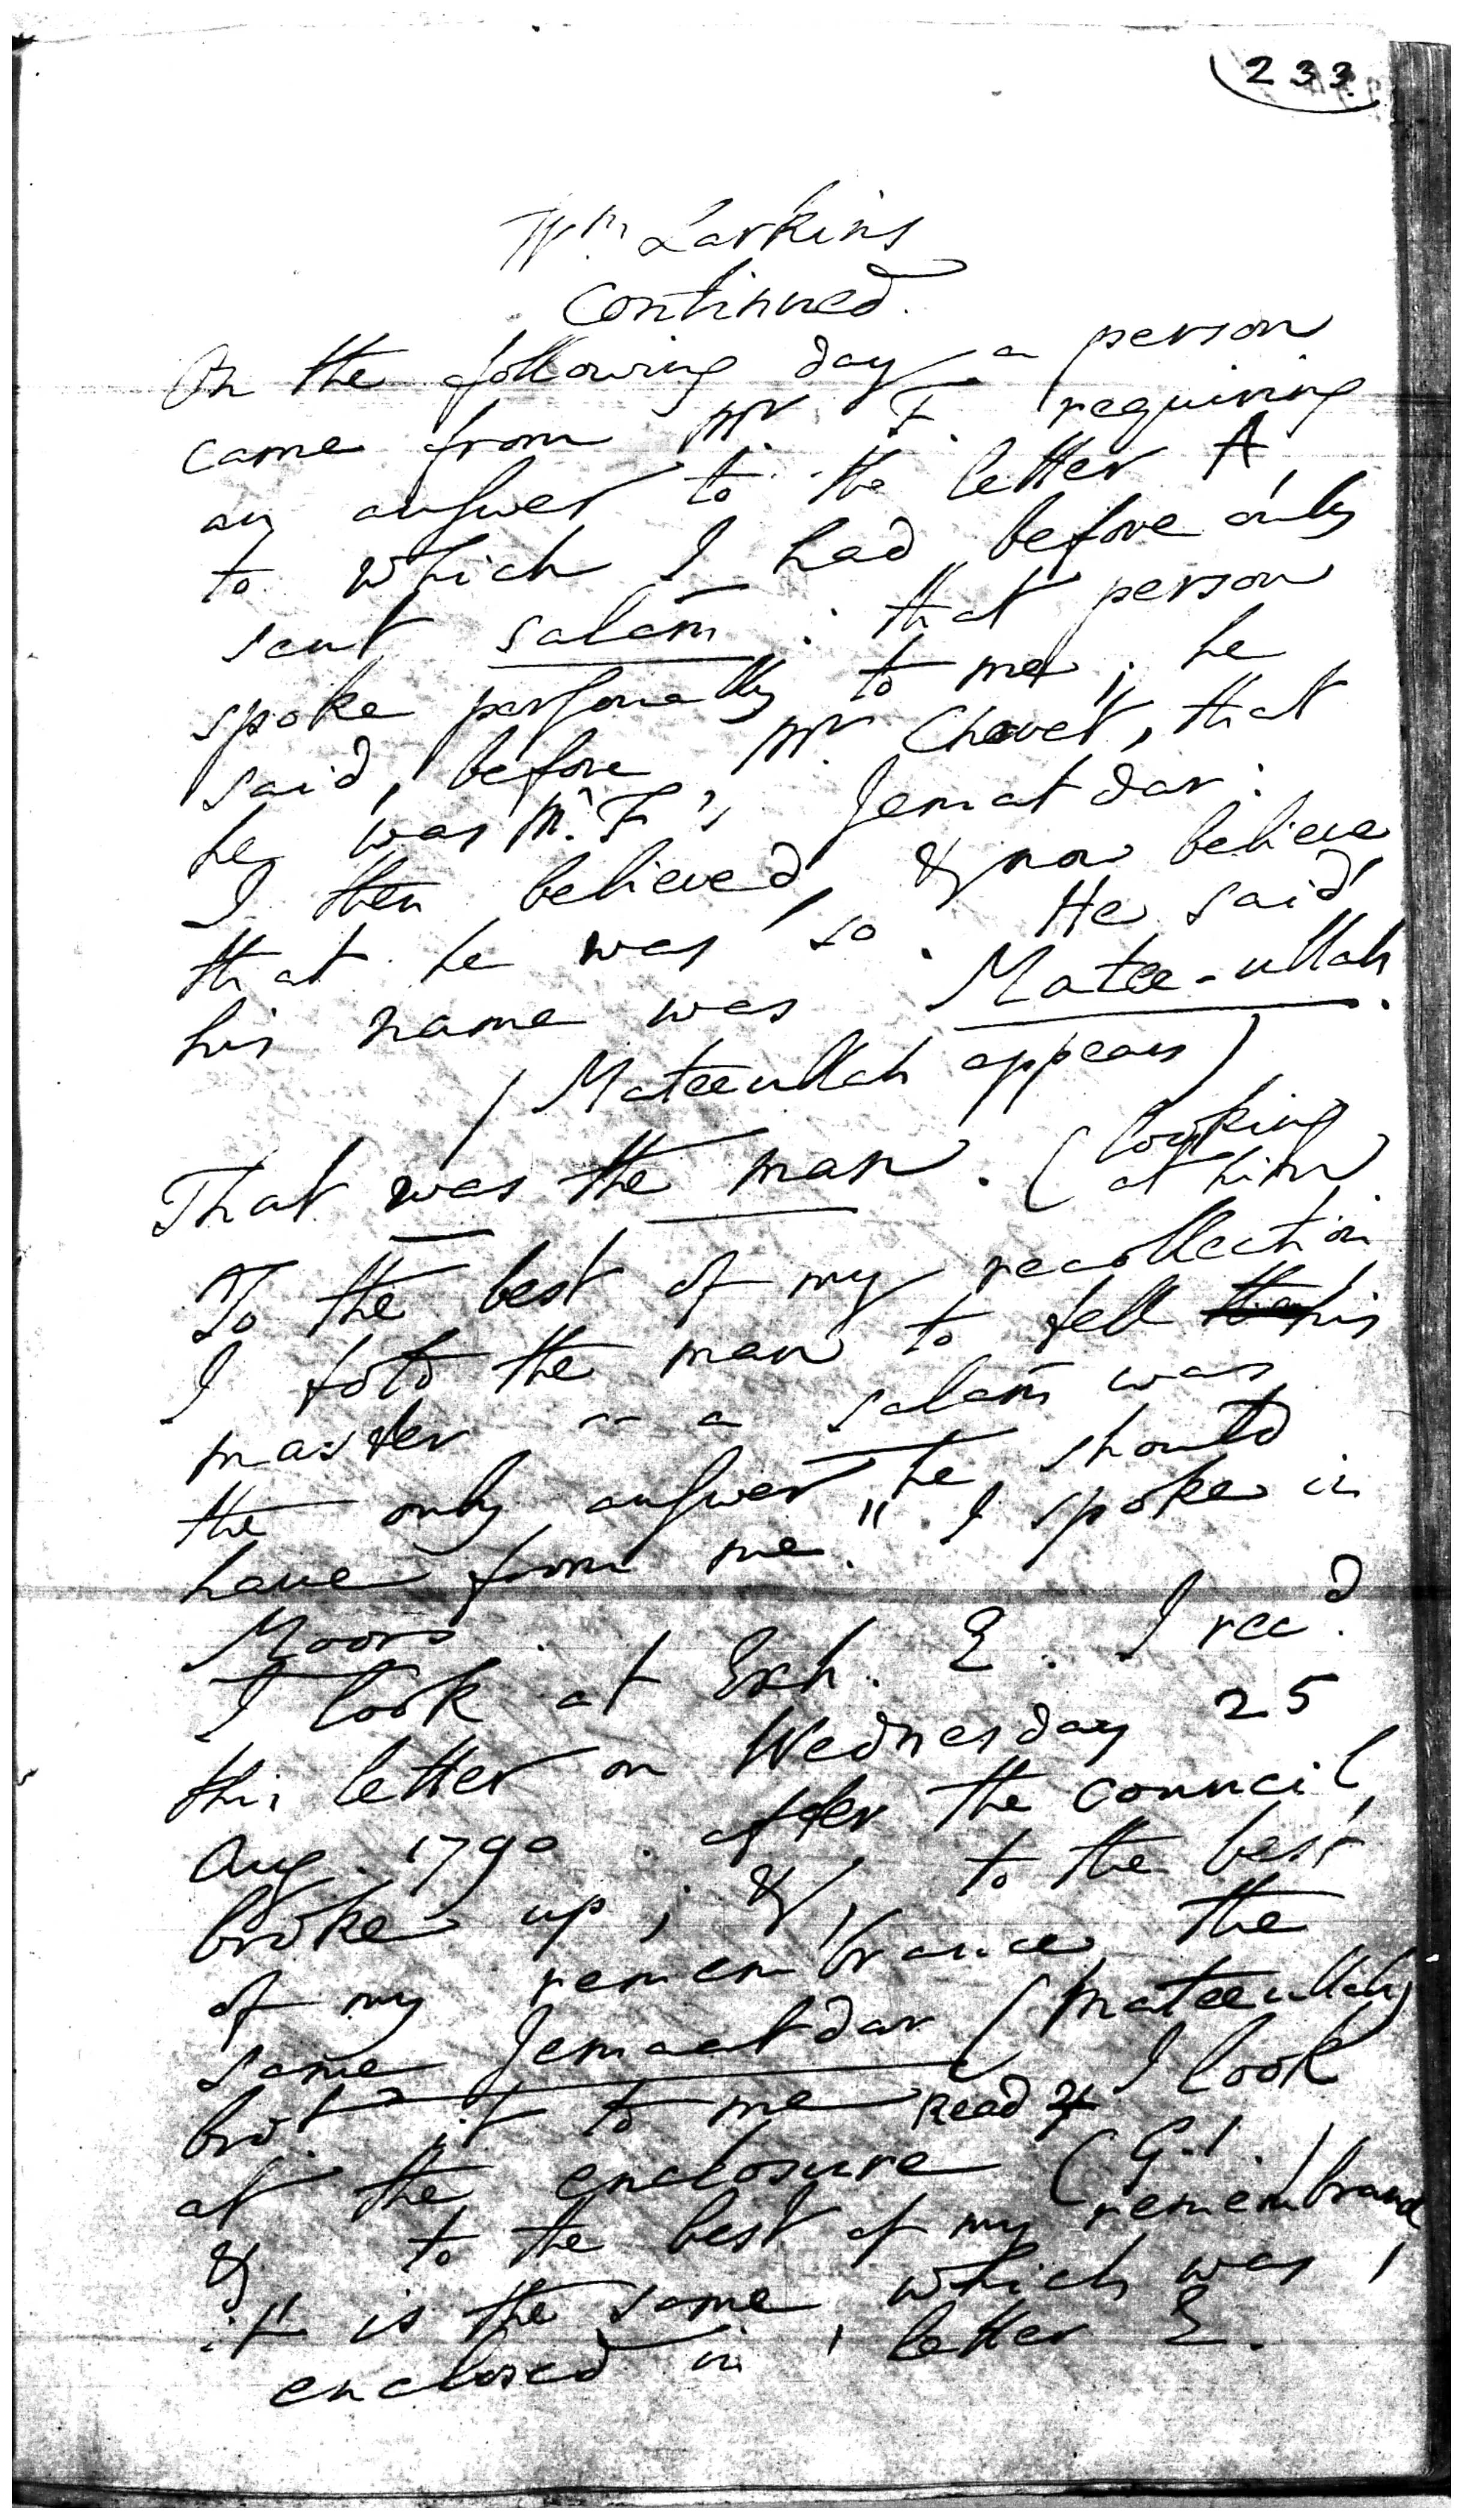 233
Wm Larkins
Continued.
On the following day a person
came from Mr. F. requiring
an answer to the letter A,
to which I had before only
sent salam: that person
spoke personally to me; he
said, before Mr. Chevet, that
he was Mr. F's Jemat dar:
I then believed, & now believe
that he was so. He said
his name was Matee-ullah.
(Mateeullah appears)
That was the man. (looking
at him)
To the best of my recollection
I told the man to tell his
master "a salam was
the only answer he should
have from me." I spoke in
Moors.
I look at Exh. E. I recd.
this letter on Wednesday 25
Aug. 1790. after the council
broke up; &, to the best
of my remembrance the
same Jemaatdar (Mateeullah)
brot. it to me Read I look
at the enclosure (G.1.)
& to the best of my remembrance,
it is the same which was
enclosed in letter E.